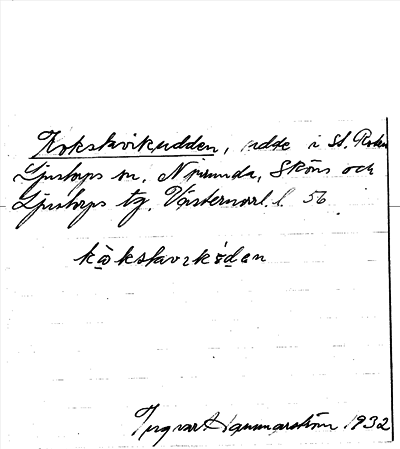 Kokslavikudden, udde i St. Roten
Ljustorps sn. Njurunda, Sköns och
Ljustorps tg. Västernorrl. l. 56
Ingvar Hammarström 1932